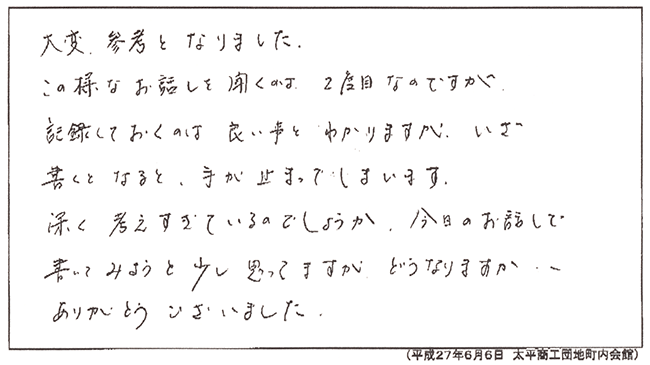 大変、参考となりました。
この様なお話しを聞くのは、2度目なのですが、
記録しておくのは良い事とわかりますが、いざ
書くとなると、手が止まってしまいます。
深く考えすぎているのでしょうか、今日のお話しで
書いてみようと少し思ってますが、どうなりますか…
ありがとうございました。
（平成27年6月6日　太平商工団地町内会館）